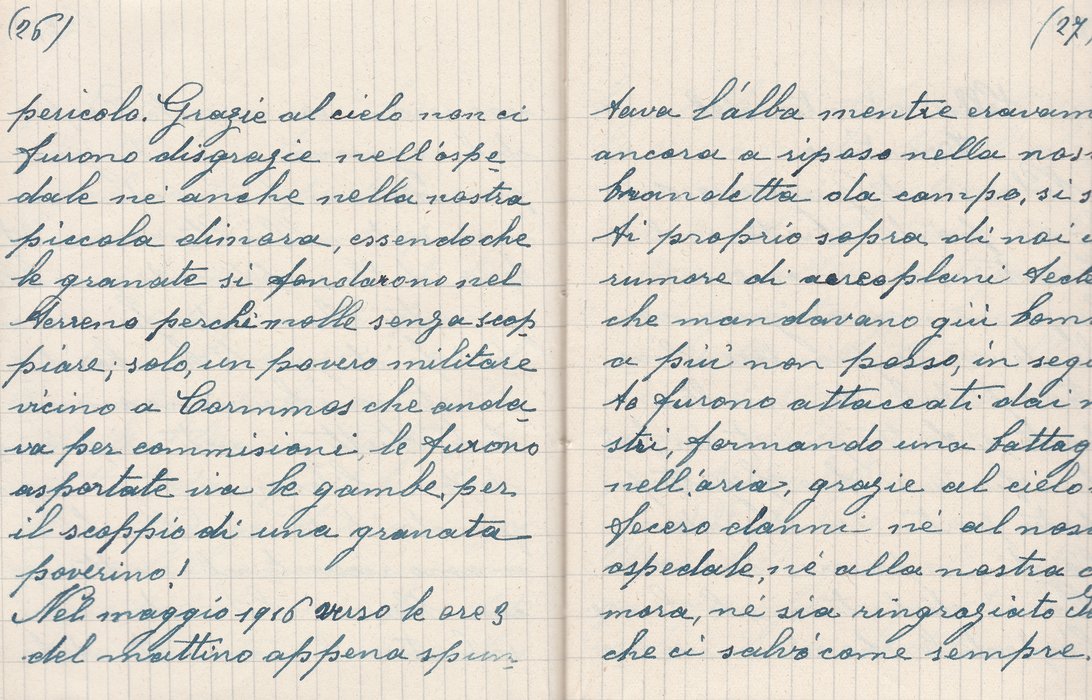 (26)
pericolo. Grazie al cielo non ci
furono disgrazie nell'ospe
dale né anche nella nostra
piccola dimora, essendoche
le granate si fondarono nel
terreno perchè molle senza scop
piare; solo, un povero militare
vicino a Cormmos che anda
va per commisioni, le furono
asportate via le gambe, per
il scoppio di una granata
poverino!
Nel maggio 1916 verso le ore 3
del mattino appena spun-
(27)
tava l'alba mentre eravam
ancora a riposo nella nos
brandetta da campo, si s
ti proprio sopra di noi
rumore di aereoplani ted
che mandavano giù bom
a più non posso, in segu
to furono attaccati dai n
stri, formando una battag
nell'aria, grazie al cielo
fecero danni né al nos
ospedale, né alla nostra
mora, né sia ringraziato
che ci salvò come sempre.